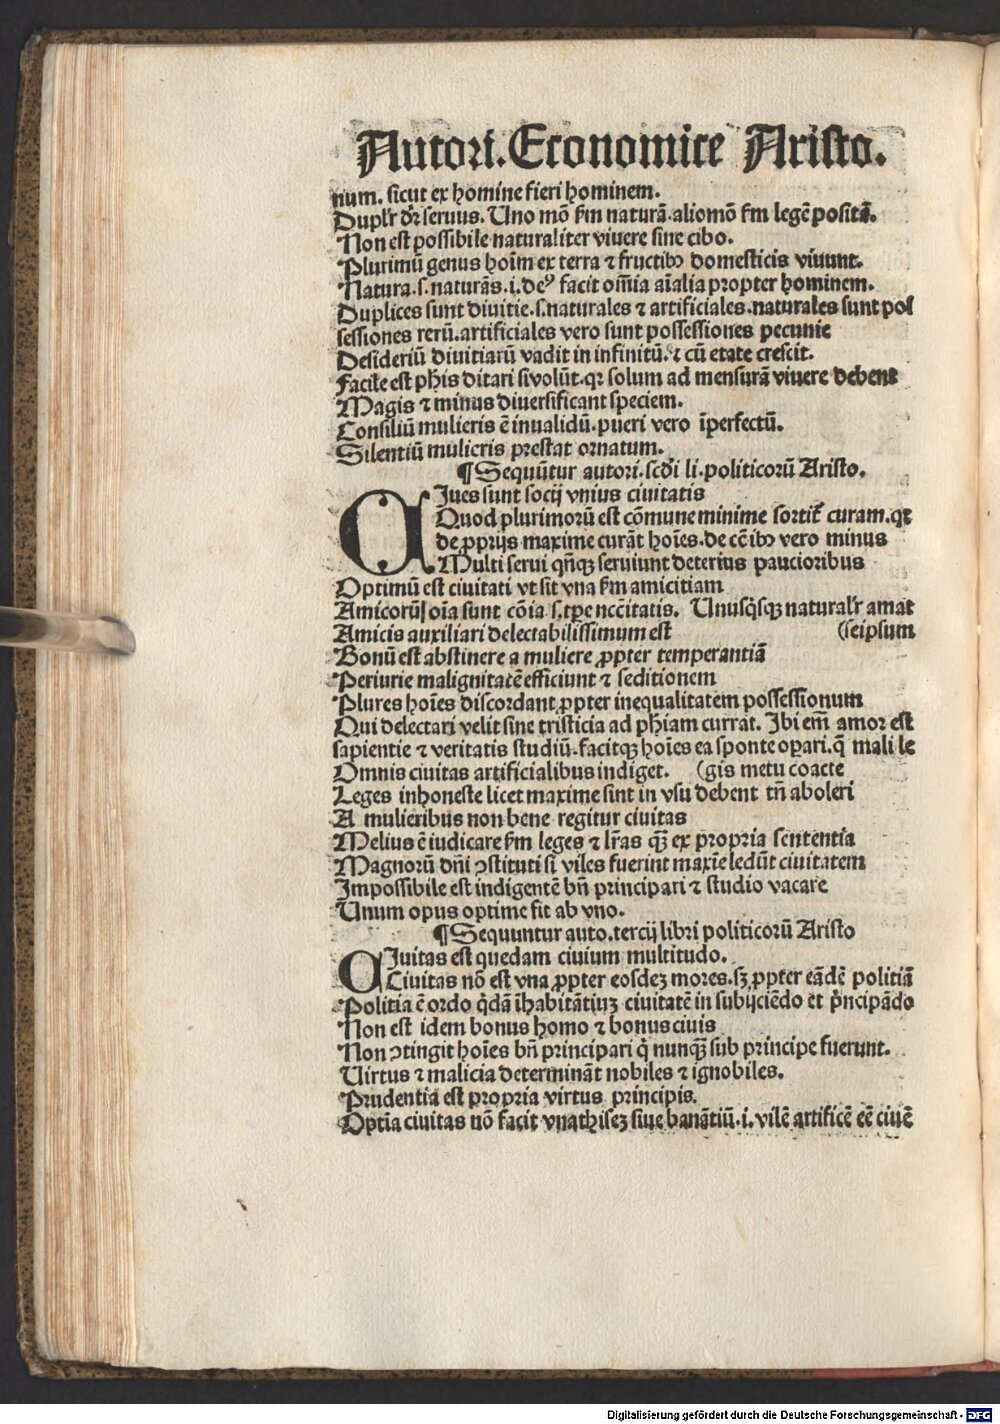 Autori. Economice Aristo.
num. sicut ex homine fieri hominem.
Duplr̃ dr̃ seruus. Uno mõ ẜm naturã. aliomõ ẜm legẽ positã.
Non est possibile naturaliter viuere sine cibo.
Plurimũ genus hoĩm ex terra ⁊ fructibꝰ domesticis viuunt.
Natura. s. naturãs. i. deꝰ facit om̃ia aĩalia propter hominem.
Duplices sunt diuitie. s. naturales ⁊ artificiales. naturales sunt pos
sessiones rerũ. artificiales vero sunt possessiones pecunie
Desideriũ diuitiarũ vadit in infinitũ. ⁊ cũ etate crescit.
Facile est phis ditari si volũt. qꝛ solum ad mensurã viuere debent
Magis ⁊ minus diuersificant speciem.
Consiliũ mulieris ẽ inualidũ. pueri vero ĩperfectũ.
Silentiũ mulieris prestat ornatum.
¶ Sequũtur autori. scđi li. politicorũ Aristo.
CIues sunt socij vnius ciuitatis
Quod plurimorũ est cõmune minime sortit᷑ curam. qꝛ
de ꝓprijs maxime curãt hoĩes. de cõibꝰ vero minus
Multi serui qñqꝫ seruiunt deterius paucioribus
Optimũ est ciuitati vt sit vna ẜm amicitiam
Amicorũ oĩa sunt cõia. s. tꝑe nccẽitatis. Unusq̃sqꝫ naturalr̃ amat
Amicis auxiliari delectabilissimum est (seipsum
Bonũ est abstinere a muliere ꝓpter temperantiã
Periurie malignitatẽ efficiunt ⁊ seditionem
Plures hoĩes discordant ꝓpter inequalitatem possessionum
Qui delectari velit sine tristicia ad phiam currat. Ibi em̃ amor est
sapientie ⁊ veritatis studiũ. facitqꝫ hoĩes ea sponte oꝑari. q̃ mali le
Omnis ciuitas artificialibus indiget. (gis metu coacte
Leges inhoneste licet maxime sint in vsu debent tñ aboleri
A mulieribus non bene regitur ciuitas
Melius ẽ iudicare ẜm leges ⁊ lr̃as qꝫ̃ ex propria sententia
Magnorũ dñi ꝯstituti si viles fuerint maxĩe ledũt ciuitatem
Impossibile est indigentẽ bñ principari ⁊ studio vacare
Unum opus optime fit ab vno.
¶ Sequuntur auto. tercij libri politicorũ Aristo
CIuitas est quedam ciuium multitudo.
Ciuitas nõ est vna ꝓpter eosdeꝫ mores. sꝫ ꝓpter eãdẽ politiã
Politia ẽ ordo q̃dã ĩhabitãtiuꝫ ciuitatẽ in subijciẽdo et p̃ncipãdo
Non est idem bonus homo ⁊ bonus ciuis
Non ꝯtingit hoĩes bñ principari q̇ nunqꝫ̃ sub principe fuerunt.
Uirtus ⁊ malicia determinãt nobiles ⁊ ignobiles.
Prudentia est propria virtus principis.
Optĩa ciuitas nõ facit siue banãtiũ. i. vilẽ artificẽ eẽ ciuẽ
Digitalisierung gefördert durch die Deutsche Forschungsgemeinschaft - DFG